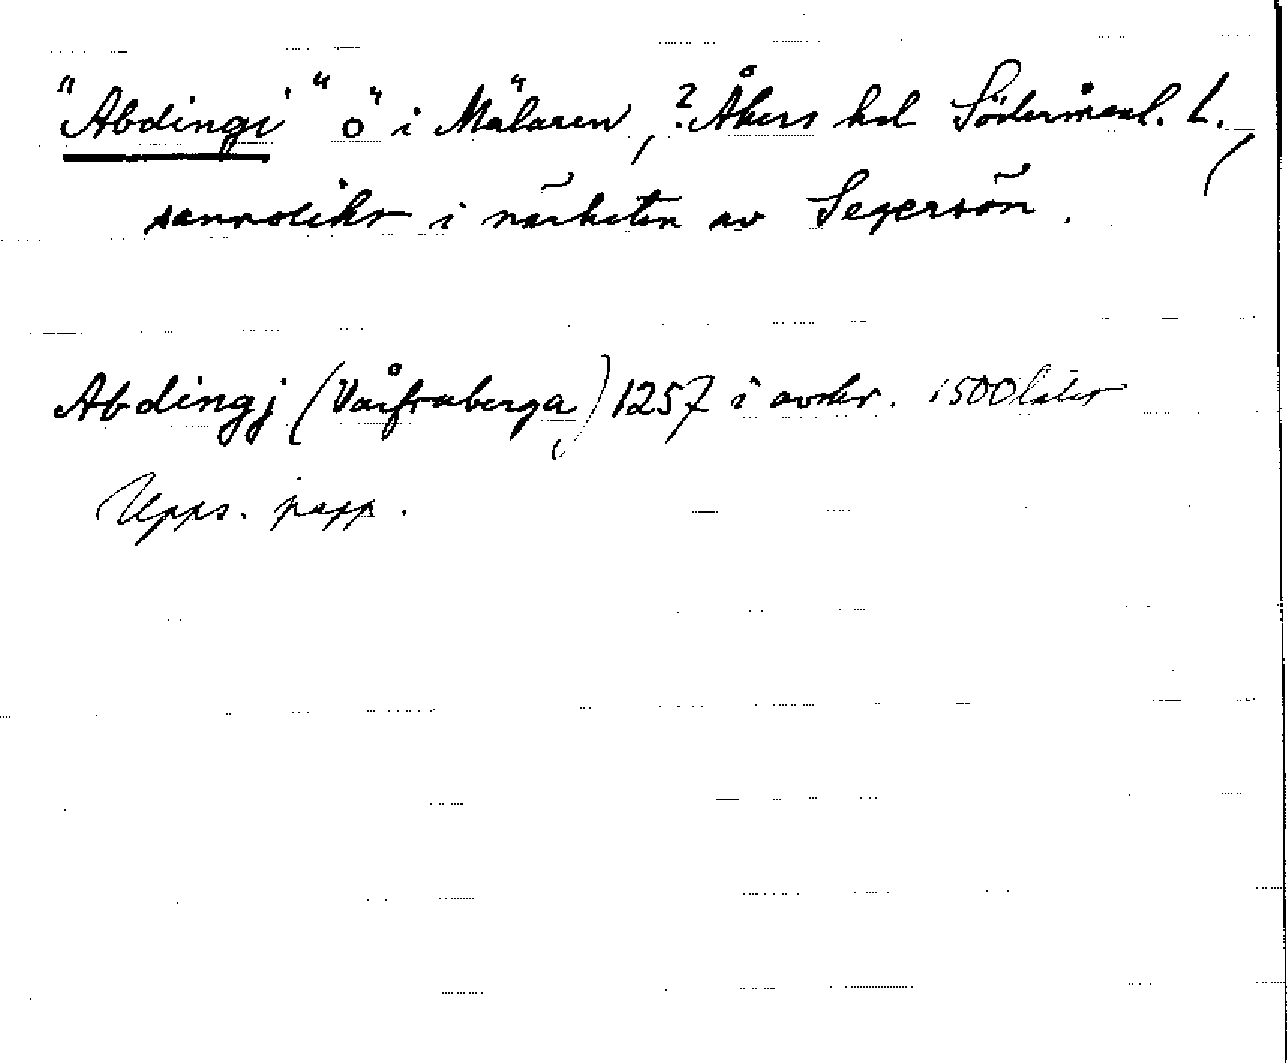 "Abdingi" ö i Mälaren, ? Åkers hd Södermanl. l.,
sannolikt i närheten av Segersön.
Abdingj (Vårfruberga) 1257 i avskr. 1500talet
Upps. papp.